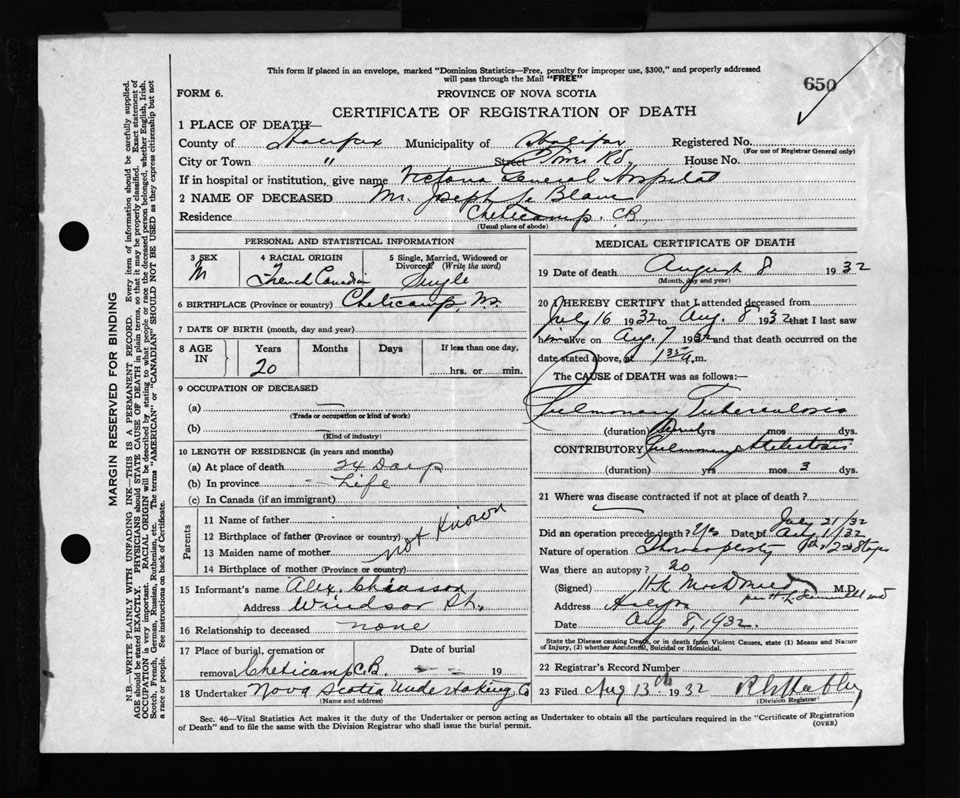 This form if placed in an envelope, marked "Dominion Statistics—Free, penalty for improper use, $300," and properly addressed
will pass through the Mail "FREE"
650
FORM 6.
PROVINCE OF NOVA SCOTIA
CERTIFICATE OF REGISTRATION OF DEATH
1 PLACE OF DEATH—
County of Halifax Municipality of Halifax Registered No.
(For use of Registrar General only)
City or Town " Street Tower Rd. House No.
If in hospital or institution, give name Victoria General Hospital
2 NAME OF DECEASED Mr. Joseph Le Blanc
Residence Cheticamp. C.B.
(Usual place of abode)
PERSONAL AND STATISTICAL INFORMATION
3 SEX
M
4 RACIAL ORIGIN
French Canadian
5 Single, Married, Widowed or
Divorced (Write the word)
Single
6 BIRTHPLACE (Province or country) Cheticamp,
7 DATE OF BIRTH (month, day and year)
8 AGE IN
Years Months Days If less than one day,
20 hrs. or min.
9 OCCUPATION OF DECEASED
(a) —
(Trade or occupation or kind of work)
(b) —
(Kind of industry)
10 LENGTH OF RESIDENCE (in years and months)
(a) At place of death 24 Days
(b) In province Life
(c) In Canada (if an immigrant)
Parents
11 Name of father
12 Birthplace of father (Province or country)
13 Maiden name of mother
14 Birthplace of mother (Province or country)
not Known
15 Informant's name Alex. Chiasson
Address Windsor St.
16 Relationship to deceased none
17 Place of burial, cremation or
removal Cheticamp C.B.
Date of burial
— — 19
18 Undertaker Nova Scotia Undertaking Co
(Name and address)
MEDICAL CERTIFICATE OF DEATH
19 Date of death August 8 1932
(Month, day and year)
20 I HEREBY CERTIFY that I attended deceased from
July 16 1932 to Aug. 8 1932 that I last saw
him alive on Aug. 7 1932 and that death occurred on the
date stated above, at 1 35 a.m.
The CAUSE of DEATH was as follows:—
Pulmonary Tuberculosis
(duration) yrs mos dys.
CONTRIBUTORY Pulmonary
(duration) yrs mos 3 dys.
21 Where was disease contracted if not at place of death?
Did an operation precede death? Yes Date of July 21/32
Aug 1/32
Nature of operation Thoracoplasty 1st & 2nd Stages
Was there an autopsy? no
(Signed) M.D.
Address Halifax
Date Aug 8, 1932.
State the Disease causing Death, or in death from Violent Causes, state (1) Means and Nature
of Injury, (2) whether Accidental, Suicidal or Homicidal.
22 Registrar's Record Number
23 Filed Aug 13th 1932
(Division Registrar)
Sec. 46—Vital Statistics Act makes it the duty of the Undertaker or person acting as Undertaker to obtain all the particulars required in the "Certificate of Registration
of Death" and to file the same with the Division Registrar who shall issue the burial permit.
(OVER)
MARGIN RESERVED FOR BINDING
N.B.—WRITE PLAINLY WITH UNFADING INK—THIS IS A PERMANENT RECORD. Every item of information should be carefully supplied.
AGE should be stated EXACTLY. PHYSICIANS should STATE CAUSE OF DEATH in plain terms, so that it may be properly classified. Exact statement of
OCCUPATION is very important. RACIAL ORIGIN will be described by stating to what people or race the deceased person belonged, whether English, Irish,
Scotch, French, German, Russian, Ruthenian, etc. The terms "AMERICAN" or "CANADIAN" SHOULD NOT BE USED as they express citizenship but not
a race or people. See instructions on back of Certificate.